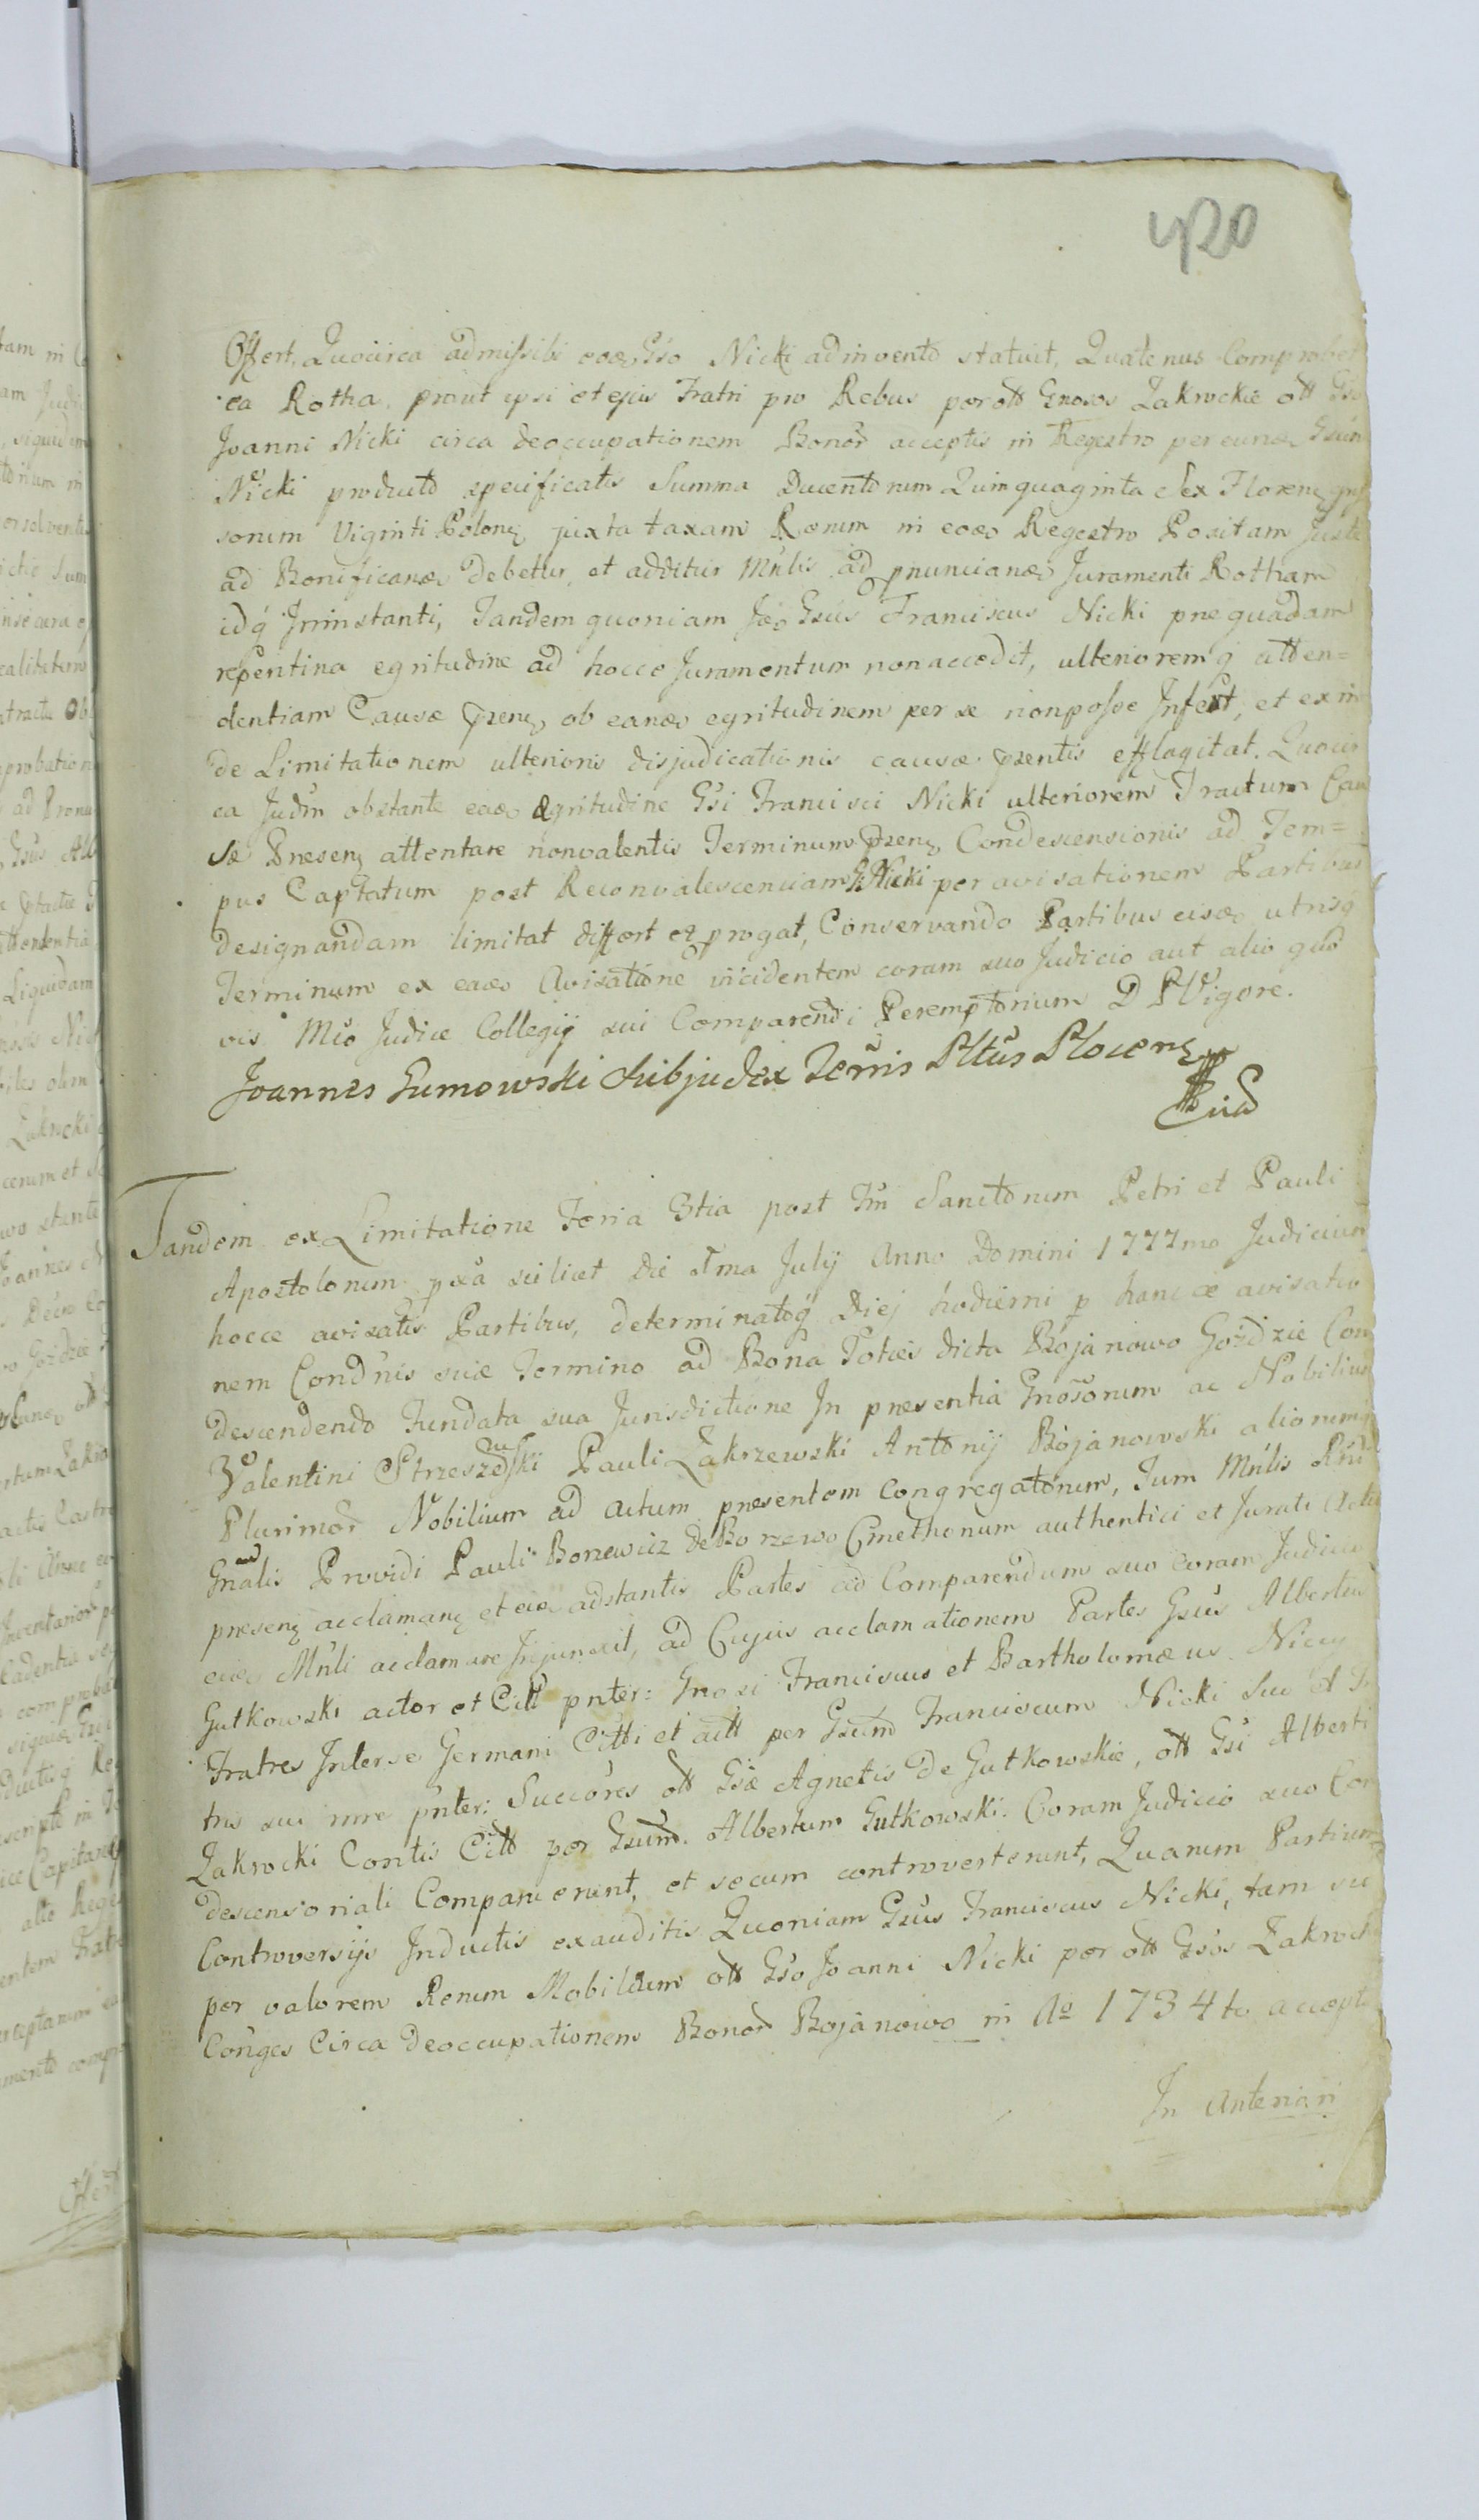 420
Offert. Quocirca admissibili eodem Gso Nicki adinvento statuit, Quatenus Comprobet
ea Rotha, prout ipsi et ejus Fratri pro Rebus per ott Gnosos Zakrockie ott Gso
Joanni Nicki circa deoccupationem Bonor acceptis in Regestro per eund Gsum
Nicki producto specificatis Summa Ducentorum Quinquaginta Sex Floren
sorum Viginti Polon juxta taxam Rerum in eod Regestro Positam Juste
ad Bonificand debetur, et additur Mnlis ad pnunciand Juramenti Rotham
idq Ininstanti, Tandem quoniam Gsus Franciscus Nicki pne quadam
repentina egritudine ad hocce Juramentum non accedit, ulteriorem q atten=
dentiam Causæ pzens ob eand egritudinem per se non posse Infert, et exin
de Limitationem ulterioris disjudicationis causæ pzentis efflagitat. Quocir
ca Judm obstante ead Ægritudine Gsi Francisci Nicki ulteriorem Tractum Cau
sæ Presens attentare nonvalentis Terminum pzens Condescensionis ad Tem=
pus Captatum post Reconvalescenciam G Nicki per avisationem Partibus
designandam limitat differt et progat, Conservando Partibus eisd utrisq
Terminum ex ead Avisatione incidentem coram suo Judicio aut alio quo
vis Mio Judice Collegij sui Comparendi Peremptorium D P Vigore.
Joannes Gumowski Subjudex Terris Pltus Plocens
Tandem ex Limitatione Feria 3tia post Fm Sanctorum Petri et Pauli
Apostolorum pxa scilicet die 1ma July Anno Domini 1777mo Judicium
hocce avisatis Partibus, determinatoq diej hodierni p hancce avisatio
nem Condnis suæ Termino ad Bona Toties dicta Bojanowo Goździe Con
descendendo Fundata sua Jurisdictione In presentia Gnosorum ac Nobilium
Valentini Strzeszewski Pauli Zakrzewski Antonij Bojanowski aliorumq
Plurimor Nobilium ad actum presentem Congregatorum, Tum Mnlis Rni
Gnalis Providi Pauli Borzewicz de Borzewo Cmethonum authentici et Jurati Actu
presens acclamans et eid adstantis Partes ad Comparendum suo coram Judicio
eid Mnli acclamare Injunxit, ad Cujus acclamationem Partes Gsus Albertus
Gutkowski actor et Citt pnter: Gnosi Franciscus et Bartholomæus Niccy
Fratres Inter se Germani Citti et actt per Gsum Franciscum Nicki suo et F
tris sui nore pnter: Succores ott Gsæ Agnetis de Gutkowskie, ott Gsi Alberti
Zakrocki Contis Citt per Gsum Albertum Gutkowski. Coram Judicio suo Con
descensoriali Comparuerunt, et secum controverterunt, Quarum Partium
Controversijs Inductis exauditis Quoniam Gsus Franciscus Nicki, tam
per valorem Rerum Mobilium ott Gso Joanni Nicki per ott Gsos Zakrockie
Conges Circa Deoccupationem Bonor Bojanowo in Ao 1734to accepto
In Anteriori